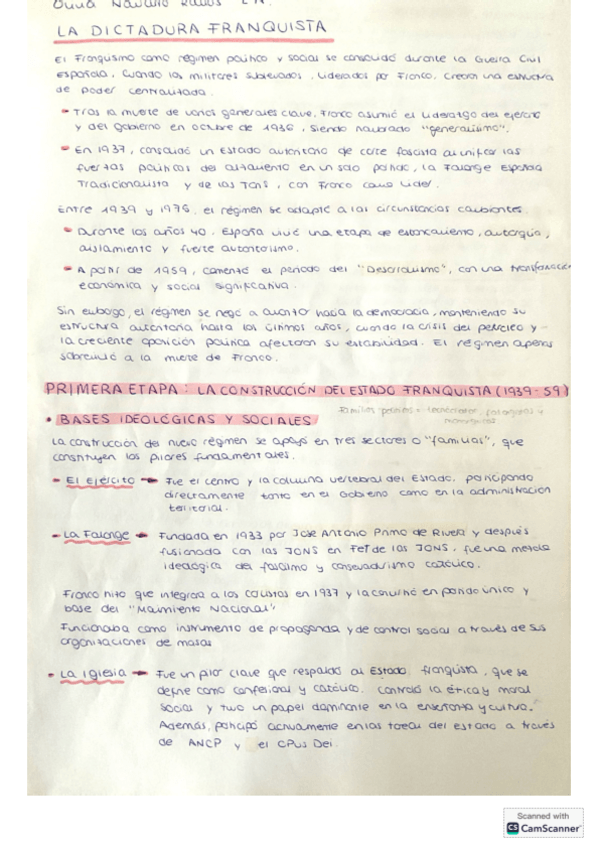 LA DICTADURA FRANQUISTA
El Franquismo como régimen político y social se consolidó durante la Guerra Civil
Española, cuando los militares sublevados, liderados por Franco, crearon una estructura
de poder centralizada.
Tras la muerte de varios generales clave, Franco asumió el liderazgo del ejército
y del gobierno en octubre de 1936, siendo nombrado "generalísimo".
En 1937, consolidó un Estado autoritario de corte fascista al unificar las
fuerzas políticas del alzamiento en un solo partido, la Falange Española
Tradicionalista y de las JONS, con Franco como líder.
Entre 1939 y 1975, el régimen se adaptó a las circunstancias cambiantes.
Durante los años 40, España vivió una etapa de estancamiento, autarquía,
aislamiento y fuerte autoritarismo.
A partir de 1959, comenzó el periodo del "Desarrollismo", con una transformación
económica y social significativa.
Sin embargo, el régimen se negó a avanzar hacia la democracia, manteniendo su
estructura autoritaria hasta los últimos años, cuando la crisis del petróleo y
la creciente oposición política afectaron su estabilidad. El régimen apenas
sobrevivió a la muerte de Franco.
PRIMERA ETAPA: LA CONSTRUCCIÓN DEL ESTADO FRANQUISTA (1939-59)
• BASES IDEOLÓGICAS Y SOCIALES
La construcción del nuevo régimen se apoyó en tres sectores o "familias", que
constituyen los pilares fundamentales.
- El ejército → Fue el centro y la columna vertebral del Estado, participando
directamente tanto en el Gobierno como en la administración
territorial.
- La Falange → Fundada en 1933 por José Antonio Primo de Rivera y después
fusionada con las JONS en FET de las JONS, fue una mezcla
ideológica del fascismo y conservadurismo católico.
Franco hizo que integrara a los carlistas en 1937 y la convirtió en partido único y
base del "Movimiento Nacional"
Funcionaba como instrumento de propaganda y de control social a través de sus
organizaciones de masas
- La Iglesia → Fue un pilar clave que respaldó al Estado franquista, que se
define como confesional y católico. Controló la ética y moral
social y tuvo un papel dominante en la enseñanza y cultura.
Además, participó activamente en las tareas del estado a través
de ANCP y el Opus Dei.
Scanned with
CS CamScanner